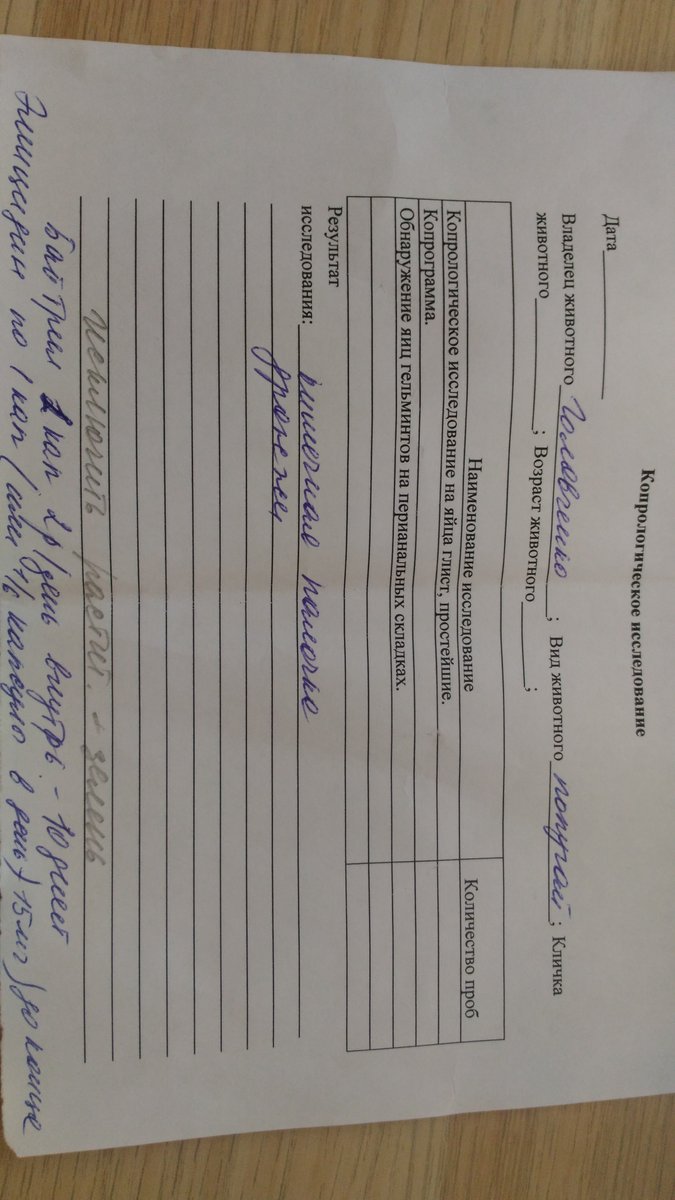 Копрологическое исследование
Дата
Владелец животного Головченко ; Вид животного попугай ; Кличка
животного ; Возраст животного ;
Наименование исследование Количество проб
Копрологическое исследование на яйца глист, простейшие.
Копрограмма.
Обнаружение яиц гельминтов на перианальных складках.
Результат
исследования: кишечная палочка
дрожжи
исключить растит. + зелень
Байтрил 1 кап 2 р/день внутрь - 10 дней
по 1 кап (или 1/2 капсулы в день) 15 мг) до конца